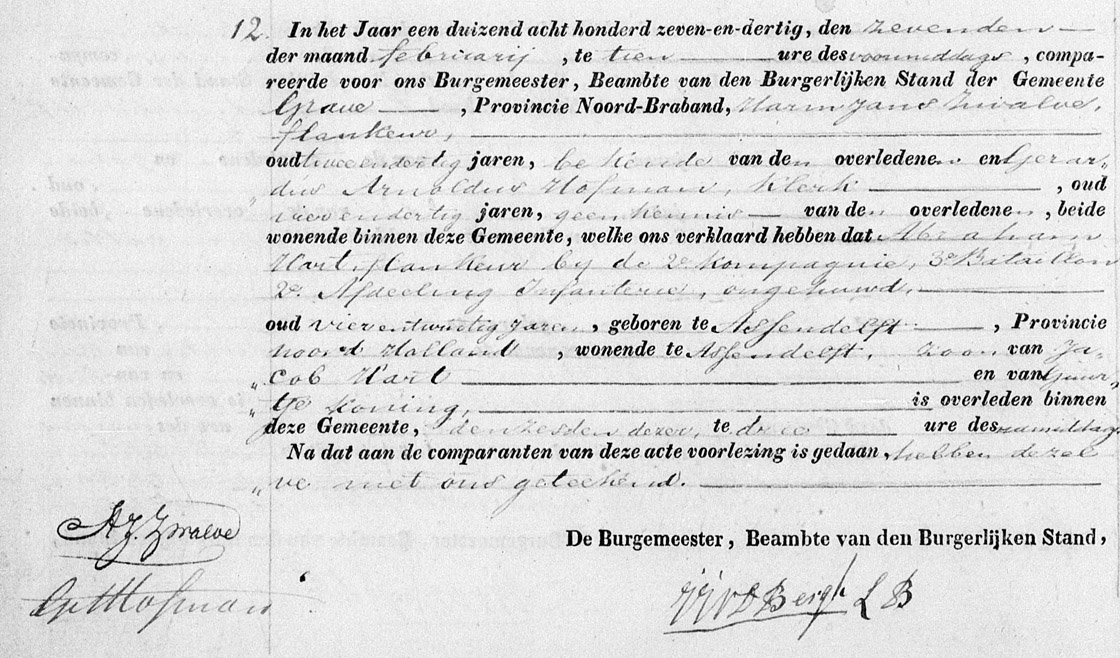 12. In het Jaar een duizend acht honderd zeven-en-dertig, den zevenden
der maand februarij, te tien ure des voormiddags, compa-
reerde voor ons Burgemeester, Beambte van den Burgerlijken Stand der Gemeente
Grave, Provincie Noord-Braband, Harm Jans Zwalve,
flankeur,
oud tweeendertig jaren, bekende van den overledenen en Gerar-
„ dus Arnoldus Hofman, Klerk, oud
vierendertig jaren, geen kennis van den overledenen, beide
wonende binnen deze Gemeente, welke ons verklaard hebben dat Abraham
Hart, flankeur by de 2e Kompagnie, 3e Bataillon
2e Afdeeling Infanterie, ongehuwd,
oud vierentwintig jaren, geboren te Assendelft, Provincie
noord Holland, wonende te Assendelft, zoon van Ja-
„ cob Hart en van Guur-
„ tje Koning, is overleden binnen
deze Gemeente, den zesden dezer, te drie ure des namiddags
Na dat aan de comparanten van deze acte voorlezing is gedaan, hebben dezel
„ ve met ons geteekend.
HJ. Zwalve
De Burgemeester, Beambte van den Burgerlijken Stand,
Hofman
vd Bergh L B